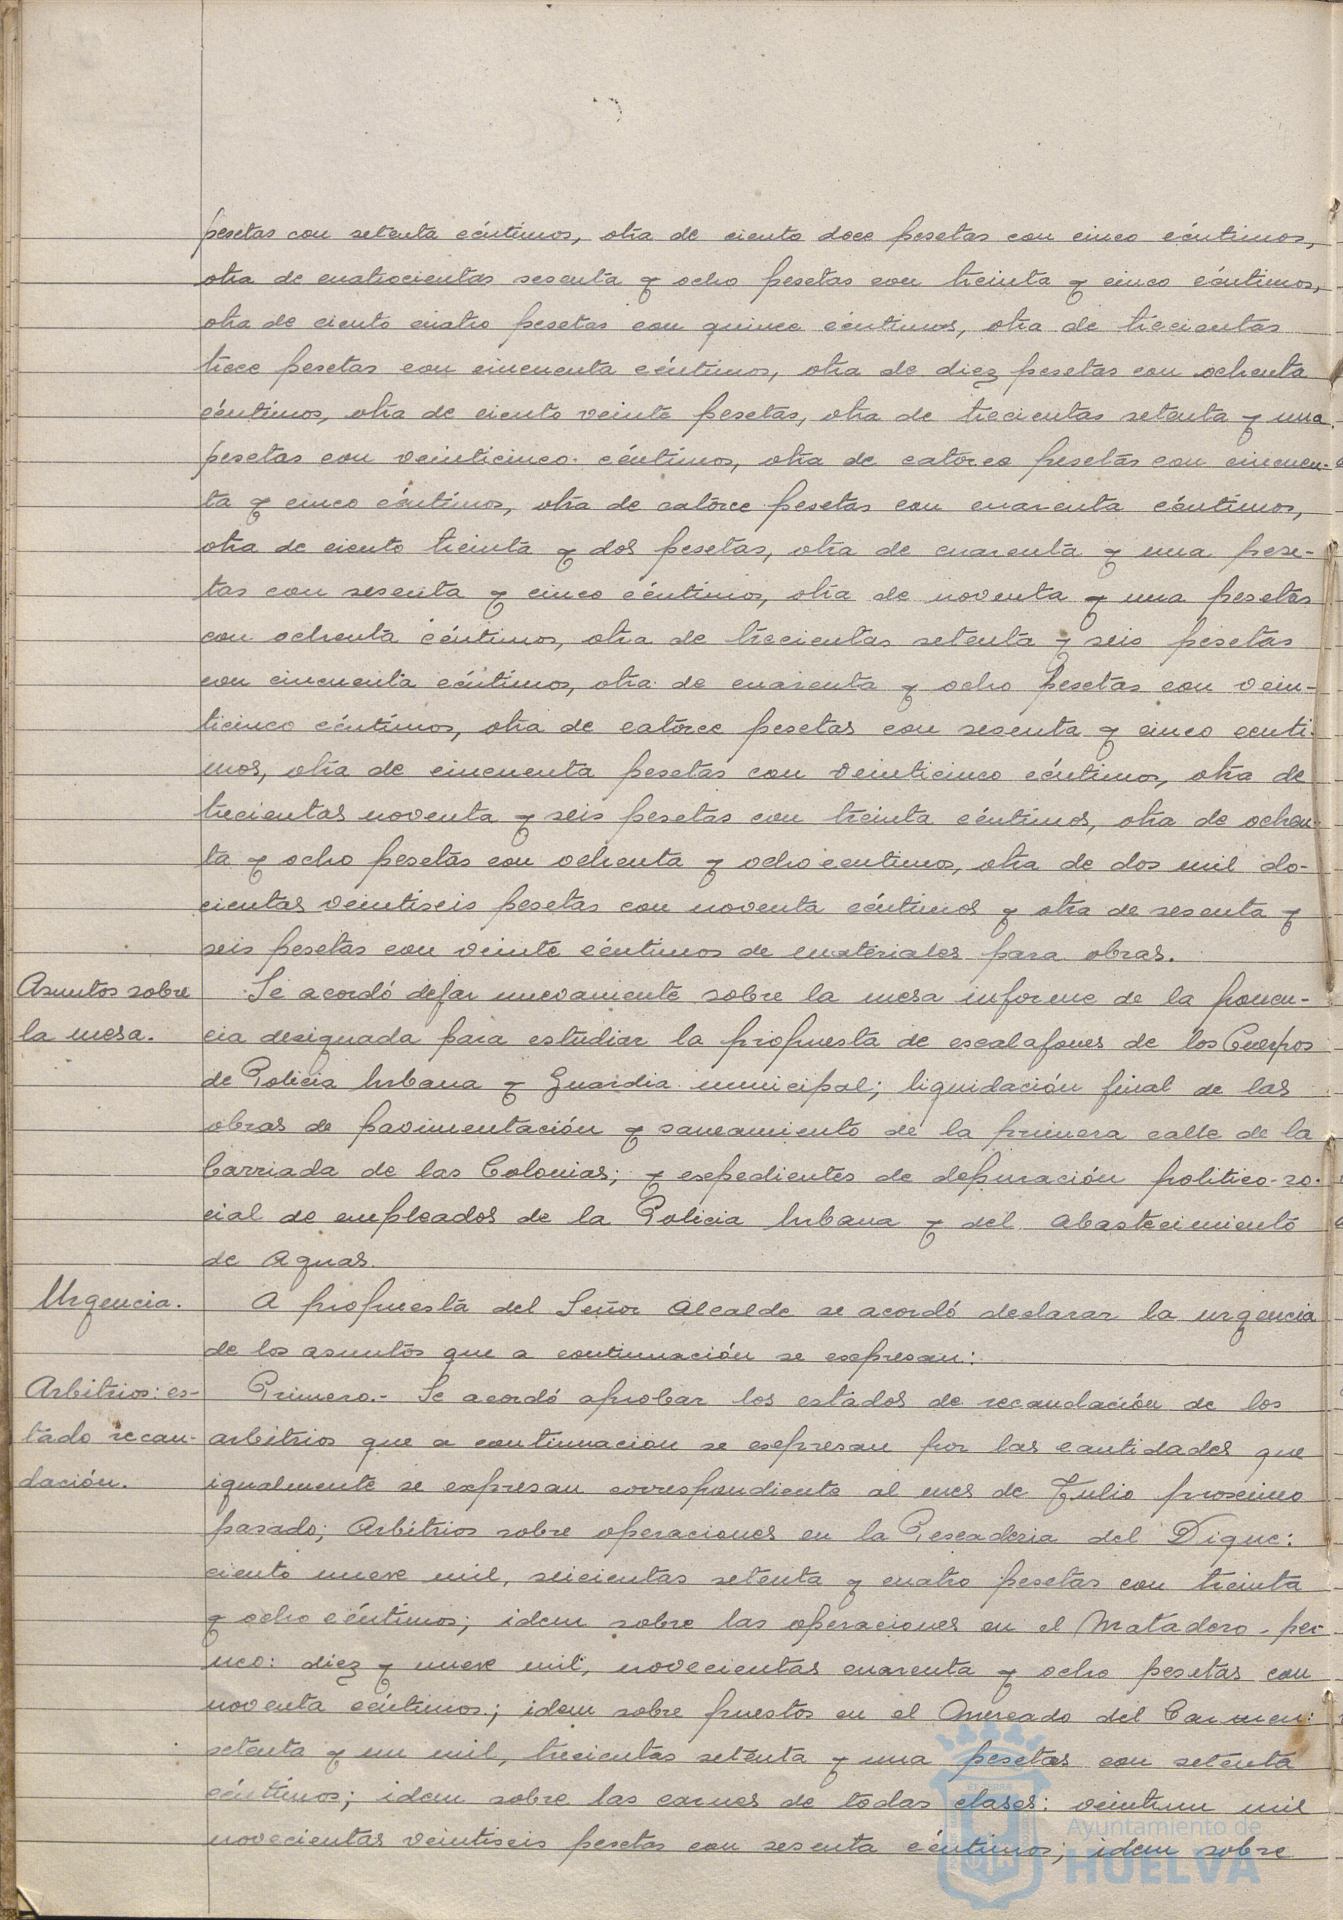 pesetas con setenta céntimos, otra de ciento doce pesetas con cinco céntimos,
otra de cuatrocientas sesenta y ocho pesetas con treinta y cinco céntimos,
otra de ciento cuatro pesetas con quince céntimos, otra de trecientas
trece pesetas con cincuenta céntimos, otra de diez pesetas con ochenta
céntimos, otra de ciento veinte pesetas, otra de trecientas setenta y una
pesetas con veinticinco céntimos, otra de catorce pesetas con cincuen-
ta y cinco céntimos, otra de catorce pesetas con cuarenta céntimos,
otra de ciento treinta y dos pesetas, otra de cuarenta y una pese-
tas con sesenta y cinco céntimos, otra de noventa y una pesetas
con ochenta céntimos, otra de trecientas setenta y seis pesetas
con cincuenta céntimos, otra de cuarenta y ocho pesetas con vein-
ticinco céntimos, otra de catorce pesetas con sesenta y cinco centi-
mos, otra de cincuenta pesetas con veinticinco céntimos, otra de
trecientas noventa y seis pesetas con treinta céntimos, otra de ochen-
ta y ocho pesetas con ochenta y ocho centimos, otra de dos mil do-
cientas veintiseis pesetas con noventa céntimos y otra de sesenta y
seis pesetas con veinte céntimos de materiales para obras.
Asuntos sobre
la mesa.
Se acordó dejar nuevamente sobre la mesa informe de la ponen-
cia designada para estudiar la propuesta de escalafones de los Cuerpos
de Policia Urbana y Guardia municipal; liquidación final de las
obras de pavimentación y saneamiento de la primera calle de la
Carriada de las Colonias; y expedientes de depuración politico-so-
cial de empleados de la Policia Urbana y del abastecimiento
de Aguas.
Urgencia.
A propuesta del Señor Alcalde se acordó declarar la urgencia
de los asuntos que a continuación se expresan:
Arbitrios: es-
tado recau-
dación.
Primero.- Se acordó aprobar los estados de recaudación de los
arbitrios que a continuación se expresan por las cantidades que
igualmente se expresan correspondiente al mes de Julio proximo
pasado; Arbitrios sobre operaciones en la Pescaderia del Dique:
ciento nueve mil, seicientas setenta y cuatro pesetas con treinta
y ocho céntimos; idem sobre las operaciones en el Matadero-per
nco: diez y nueve mil, novecientas cuarenta y ocho pesetas con
noventa céntimos; idem sobre puestos en el Mercado del Carmen:
setenta y un mil, trecientas setenta y una pesetas con setenta
céntimos; idem sobre las carnes de todas clases: veintiun mil
novecientas veintiseis pesetas con sesenta céntimos; idem sobre
Ayuntamiento de
HUELVA